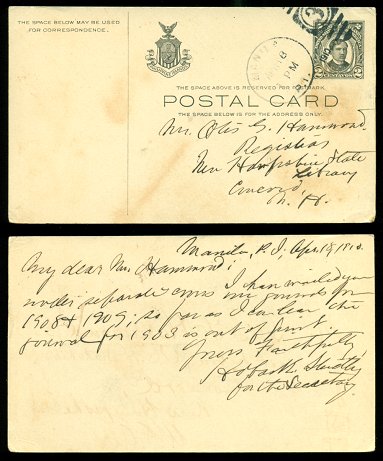 THE SPACE BELOW MAY BE USED
FOR CORRESPONDENCE.
THE SPACE ABOVE IS RESERVED FOR POSTMARK.
POSTAL CARD
THE SPACE BELOW IS FOR THE ADDRESS ONLY.
MANILA
8
PM
P.I.
2 CENTAVOS 2
Mr. Otis G. Hammond,
Registrar
New Hampshire State
Library
Concord,
N. H.
Manila, P. I. Apr. 19, 1910.
My dear Mr. Hammond:
under separate cover I have mailed you
our journals for
1908 & 1909; so far as I can learn the
journal for 1903 is out of print.
Yours Faithfully,
for the Secretary